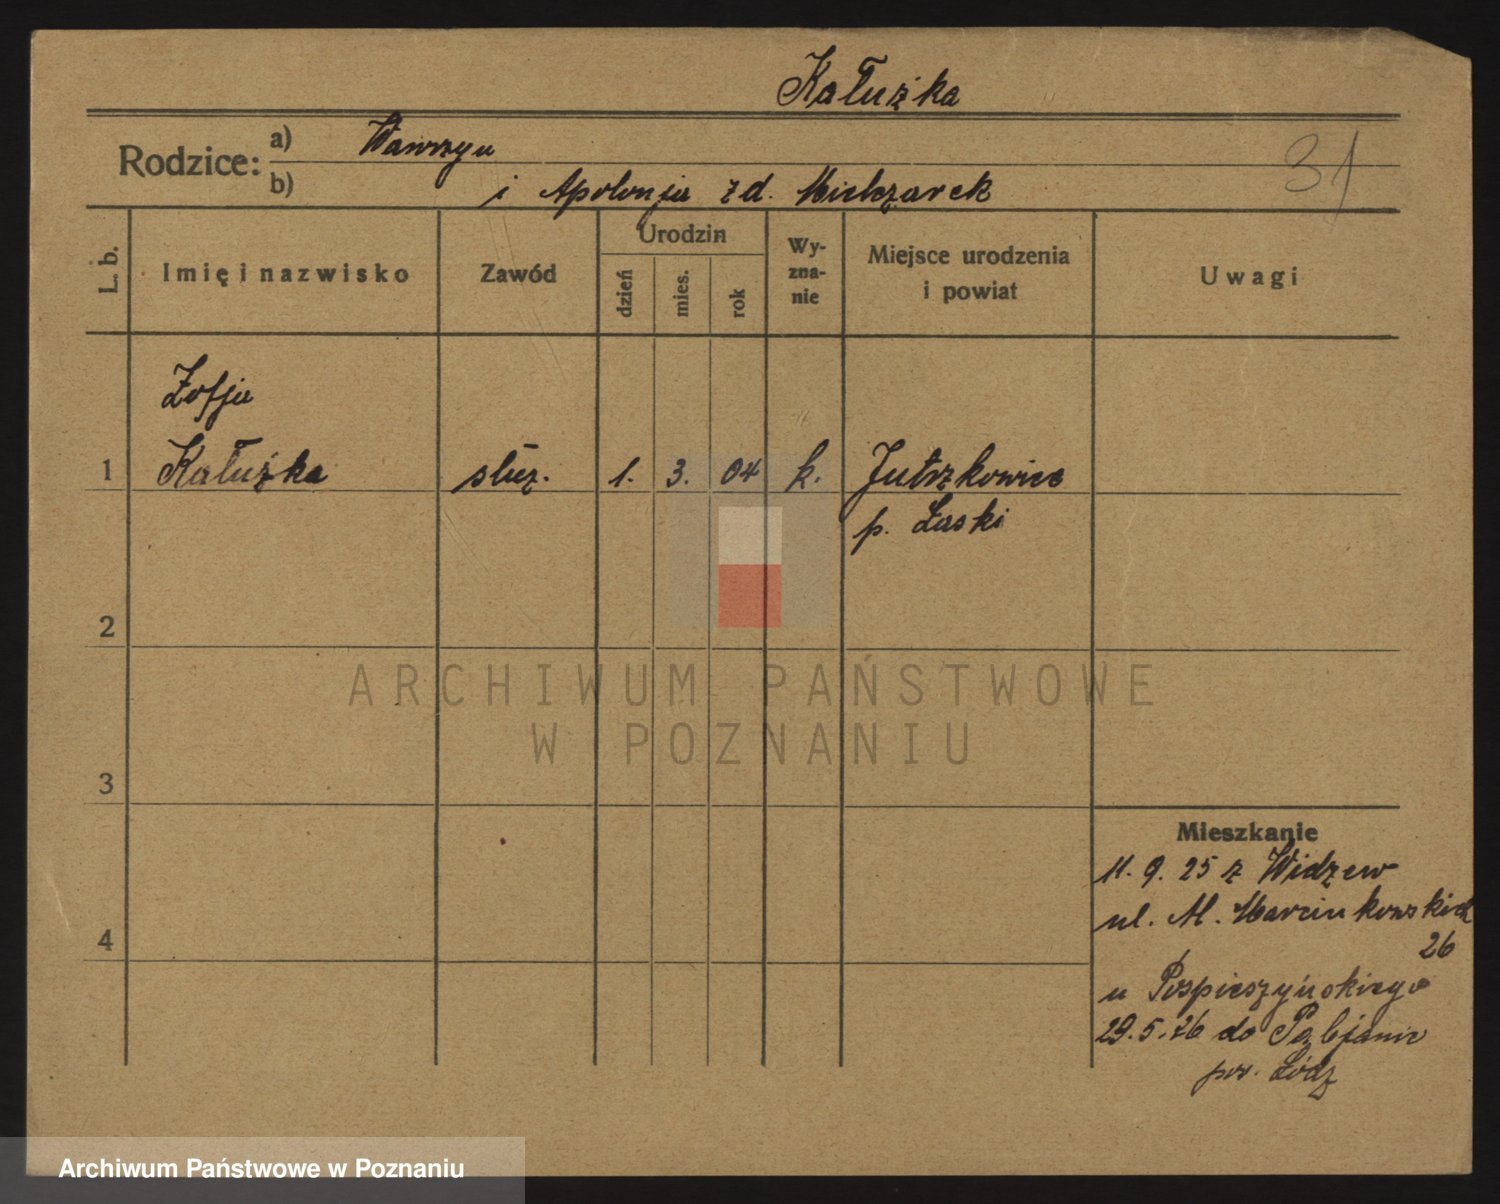 Kałużka
Rodzice: a) Wawrzyn
b) i Apolonja zd. Mielczarek
31
L. b.
Imię i nazwisko
Zawód
Urodzin
dzień
mies.
rok
Wy-
zna-
nie
Miejsce urodzenia
i powiat
Uwagi
Zofja
1 Kałużka służ. 1. 3. 04 k. Jutrzkowice
p. Łaski
2
ARCHIWUM PAŃSTWOWE
W POZNANIU
3
Mieszkanie
11. 9. 25 z Widzew
ul. M. Marcinkowskich
26
4
u Pospieszyńskiego
29. 5. 26 do Pabjanic
pow. Łódź
Archiwum Państwowe w Poznaniu